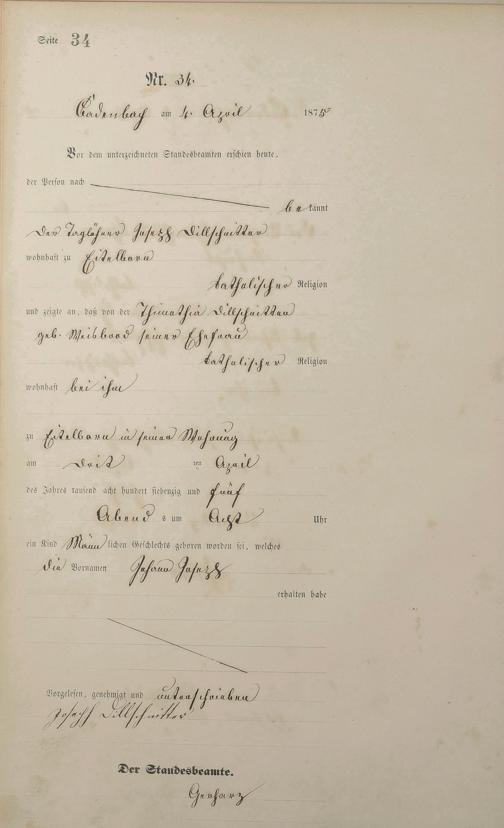 Seite 34
Nr. 34.
Cadenbach am 4. April 1875
Vor dem unterzeichneten Standesbeamten erschien heute,
der Person nach
be kannt
der Taglöhner Joseph Dillschnitter
wohnhaft zu Eitelborn
katholischer Religion
und zeigte an, daß von der Thimathia Dillschnitter
geb. Weisbrod seiner Ehefrau
katholischer Religion
wohnhaft bei ihm
zu Eitelborn in seiner Wohnung
am drit ten April
des Jahres tausend acht hundert siebenzig und fünf
Abend s um Acht Uhr
ein Kind Männ lichen Geschlechts geboren worden sei, welches
die Vornamen Johann Joseph
erhalten habe
Vorgelesen, genehmigt und unterschrieben
Joseph Dillschnitter
Der Standesbeamte.
Gerharz